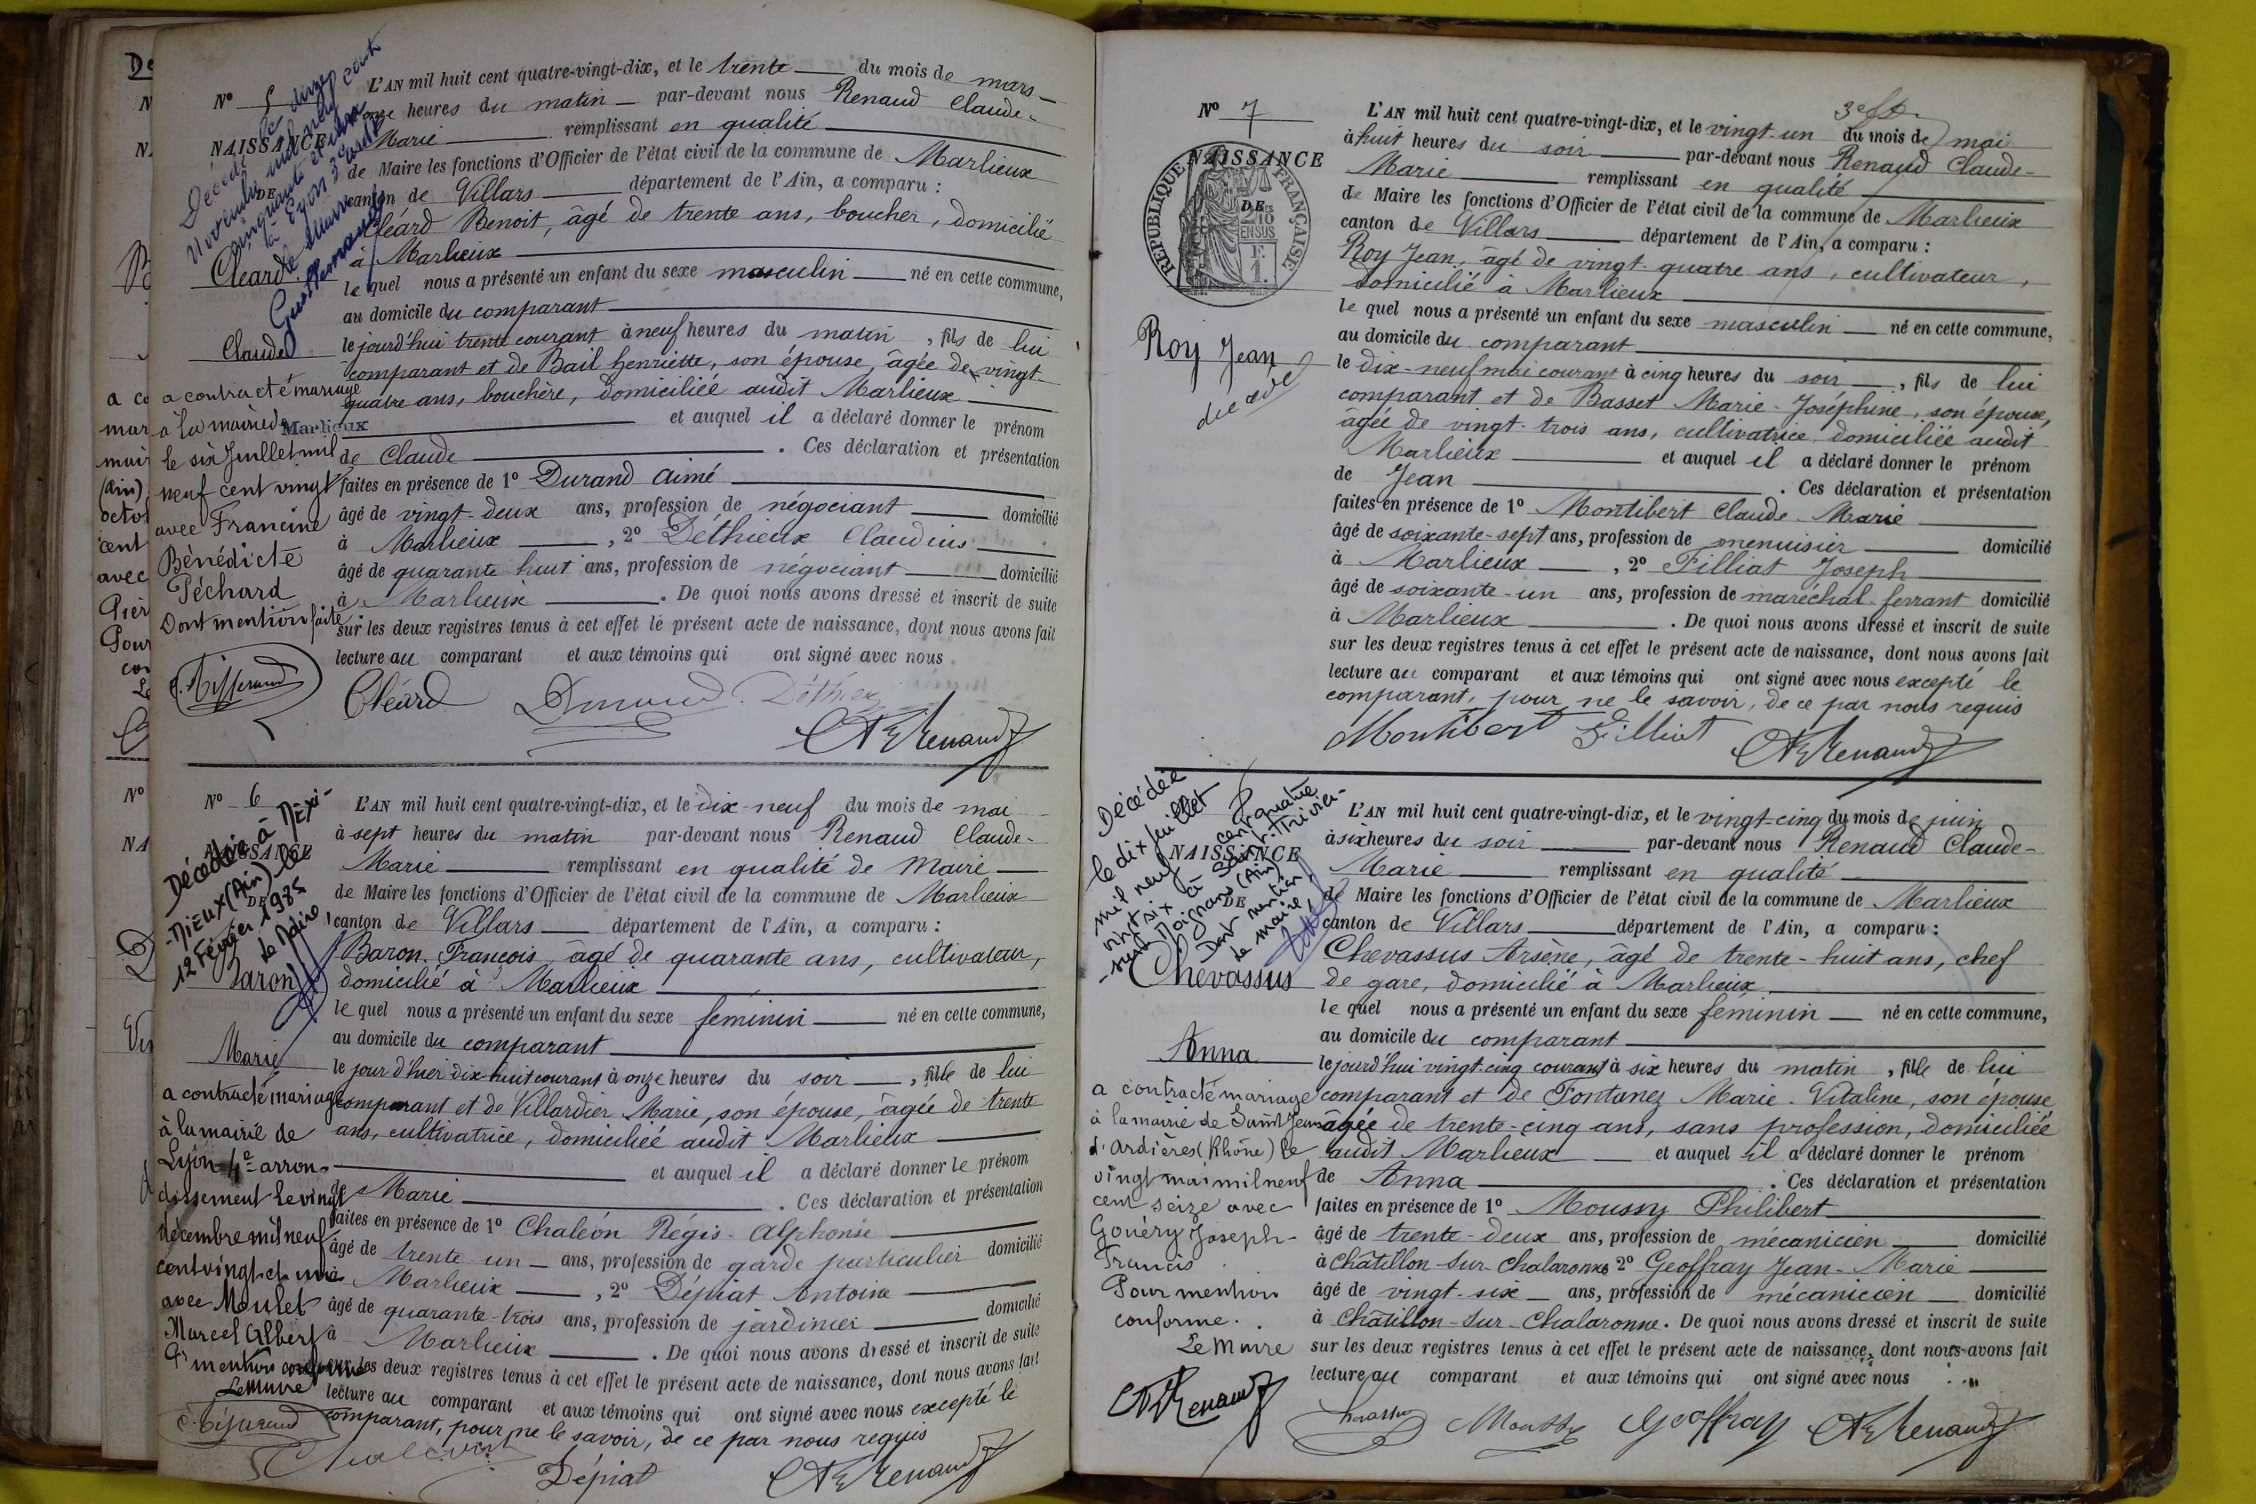 N° 5
NAISSANCE
DE
Cléard
Claude
a contracté mariage
à la mairie de Marlieux
le six Juillet mil
neuf cent vingt
avec Francine
Bénédicte
Péchard
Dont mention faite
L'AN mil huit cent quatre-vingt-dix, et le trente du mois de mars
onze heures du matin par-devant nous Renaud Claude-
Marie remplissant en qualité
de Maire les fonctions d'Officier de l'état civil de la commune de Marlieux
canton de Villars département de l'Ain, a comparu :
Cléard Benoit, âgé de trente ans, boucher, domicilié
à Marlieux
le quel nous a présenté un enfant du sexe masculin né en cette commune,
au domicile du comparant
le jourd'hui trente courant à neuf heures du matin, fils de lui
comparant et de Bail Henriette, son épouse, âgée de vingt-
quatre ans, bouchère, domiciliée audit Marlieux
et auquel il a déclaré donner le prénom
de Claude. Ces déclaration et présentation
faites en présence de 1° Durand Aimé
âgé de vingt-deux ans, profession de négociant domicilié
à Marlieux, 2° Déthieux Claudius
âgé de quarante huit ans, profession de négociant domicilié
à Marlieux. De quoi nous avons dressé et inscrit de suite
sur les deux registres tenus à cet effet le présent acte de naissance, dont nous avons fait
lecture au comparant et aux témoins qui ont signé avec nous.
Cléard Durand Déthieux
Renaud
N° 6
NAISSANCE
DE
Décédée à Mézi-
-riEux (Ain) le
12 Février 1985
Le Maire,
Baron
Marie
a contracté mariage
à la mairie de
Lyon 4e arron-
dissement le vingt
décembre mil neuf
cent vingt et un
avec Moulet
Marcel Albert
Pr mention conforme
Le Maire
L'AN mil huit cent quatre-vingt-dix, et le dix-neuf du mois de mai
à sept heures du matin par-devant nous Renaud Claude-
Marie remplissant en qualité de Maire
de Maire les fonctions d'Officier de l'état civil de la commune de Marlieux
canton de Villars département de l'Ain, a comparu :
Baron François, âgé de quarante ans, cultivateur,
domicilié à Marlieux
le quel nous a présenté un enfant du sexe féminin né en cette commune,
au domicile du comparant
le jour d'hier dix-huit courant à onze heures du soir, fille de lui
comparant et de Villardier Marie, son épouse, âgée de trente
ans, cultivatrice, domiciliée audit Marlieux
et auquel il a déclaré donner le prénom
de Marie. Ces déclaration et présentation
faites en présence de 1° Chaléon Régis-Alphonse
âgé de trente-un ans, profession de garde particulier domicilié
à Marlieux, 2° Dépiat Antoine
âgé de quarante-trois ans, profession de jardinier domicilié
à Marlieux. De quoi nous avons dressé et inscrit de suite
sur les deux registres tenus à cet effet le présent acte de naissance, dont nous avons fait
lecture au comparant et aux témoins qui ont signé avec nous excepté le
comparant, pour ne le savoir, de ce par nous requis
Dépiat Renaud
N° 7
NAISSANCE
DE
RÉPUBLIQUE FRANÇAISE
2/10 EN SUS
F. 1.
Roy Jean
décédé
L'AN mil huit cent quatre-vingt-dix, et le vingt-un du mois de mai
à huit heures du soir par-devant nous Renaud Claude-
Marie remplissant en qualité
de Maire les fonctions d'Officier de l'état civil de la commune de Marlieux
canton de Villars département de l'Ain, a comparu :
Roy Jean, âgé de vingt-quatre ans, cultivateur,
domicilié à Marlieux
le quel nous a présenté un enfant du sexe masculin né en cette commune,
au domicile du comparant
le dix-neuf mai courant à cinq heures du soir, fils de lui
comparant et de Basset Marie-Joséphine, son épouse,
âgée de vingt-trois ans, cultivatrice domiciliée audit
Marlieux et auquel il a déclaré donner le prénom
de Jean. Ces déclaration et présentation
faites en présence de 1° Montibert Claude-Marie
âgé de soixante-sept ans, profession de menuisier domicilié
à Marlieux, 2° Filliat Joseph
âgé de soixante-un ans, profession de maréchal-ferrant domicilié
à Marlieux. De quoi nous avons dressé et inscrit de suite
sur les deux registres tenus à cet effet le présent acte de naissance, dont nous avons fait
lecture au comparant et aux témoins qui ont signé avec nous excepté le
comparant, pour ne le savoir, de ce par nous requis
Montibert Filliat Renaud
8
NAISSANCE
DE
Décédée
le dix juillet
mil neuf cent quatre
vingt six à Saint-Trivier-
-sur-Moignans (Ain)
Dont mention,
le maire,
Chevassus
Anna
a contracté mariage
à la mairie de Saint Jean
d'Ardières (Rhône) le
vingt mai mil neuf
cent seize avec
Gouéry Joseph-
Francis
Pour mention
conforme.
Le Maire
Renaud
L'AN mil huit cent quatre-vingt-dix, et le vingt-cinq du mois de juin
à six heures du soir par-devant nous Renaud Claude-
Marie remplissant en qualité
de Maire les fonctions d'Officier de l'état civil de la commune de Marlieux
canton de Villars département de l'Ain, a comparu :
Chevassus Arsène, âgé de trente-huit ans, chef
de gare, domicilié à Marlieux
le quel nous a présenté un enfant du sexe féminin né en cette commune,
au domicile du comparant
le jourd'hui vingt-cinq courant à six heures du matin, fille de lui
comparant et de Fontanez Marie-Vitaline, son épouse
âgée de trente-cinq ans, sans profession, domiciliée
audit Marlieux et auquel il a déclaré donner le prénom
de Anna. Ces déclaration et présentation
faites en présence de 1° Moussy Philibert
âgé de trente-deux ans, profession de mécanicien domicilié
à Châtillon-sur-Chalaronne 2° Geoffray Jean-Marie
âgé de vingt-six ans, profession de mécanicien domicilié
à Châtillon-sur-Chalaronne. De quoi nous avons dressé et inscrit de suite
sur les deux registres tenus à cet effet le présent acte de naissance, dont nous avons fait
lecture au comparant et aux témoins qui ont signé avec nous
Moussy Geoffray Renaud